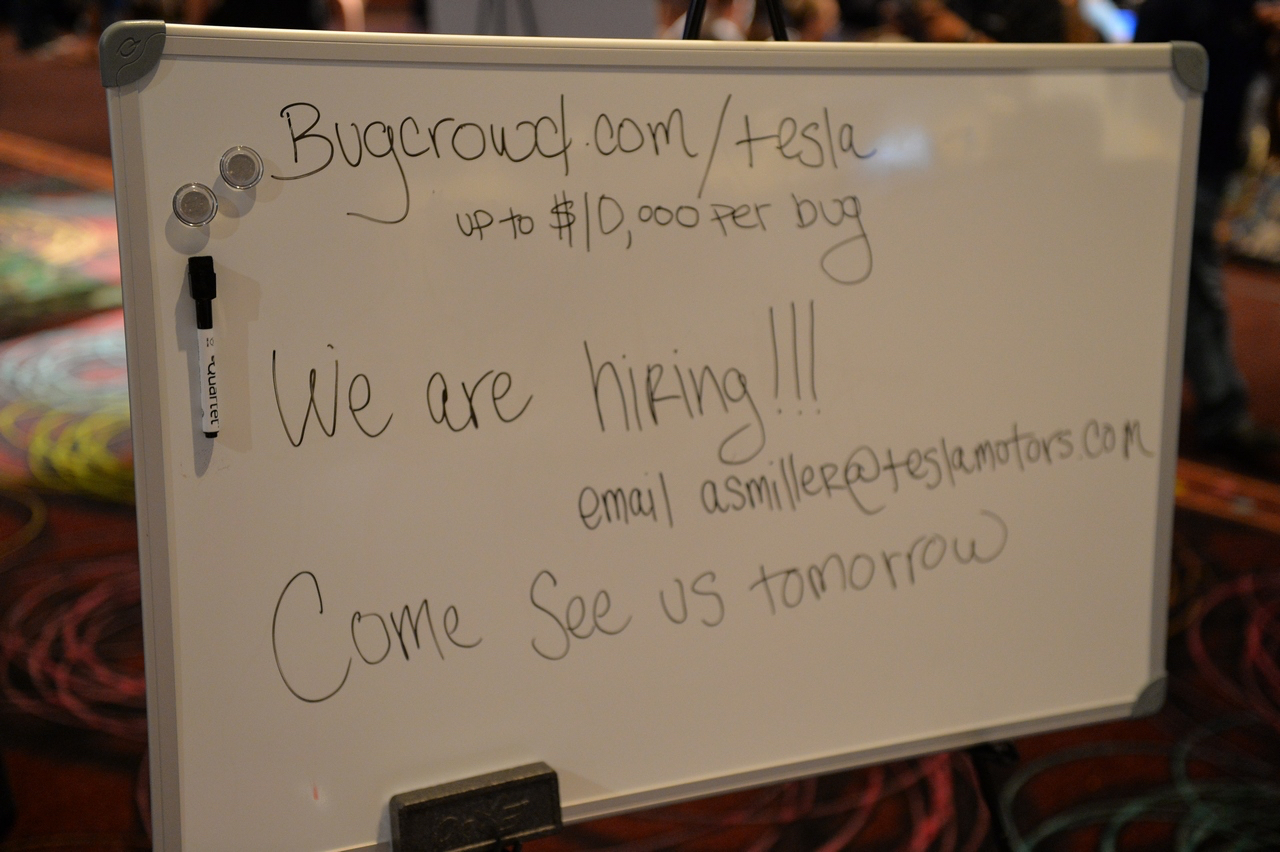 Bugcrowd.com/tesla
up to $10,000 per bug
We are hiring!!!
email asmiller@teslamotors.com
Come See us tomorrow
Quartet